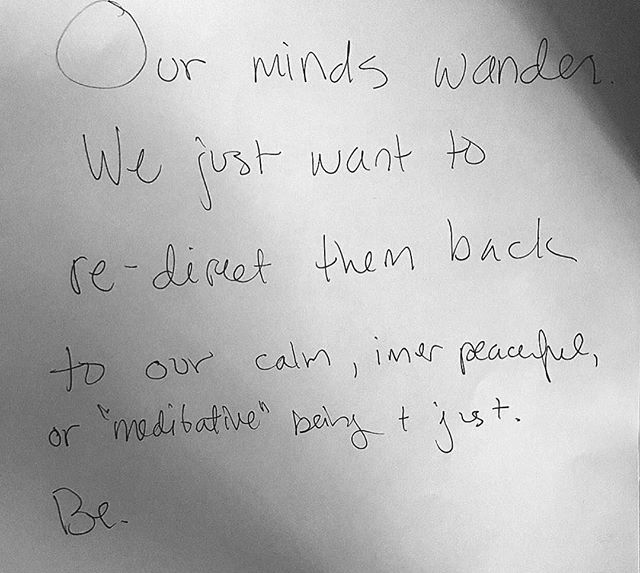 Our minds wander.
We just want to
re-direct them back
to our calm, inner peaceful,
or "meditative" being + just.
Be.